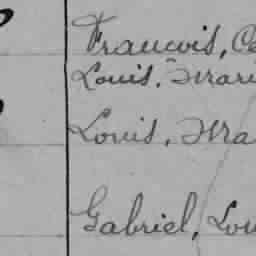 Francois, Ce
Louis. Marie
Louis. Ma
Gabriel, Lou